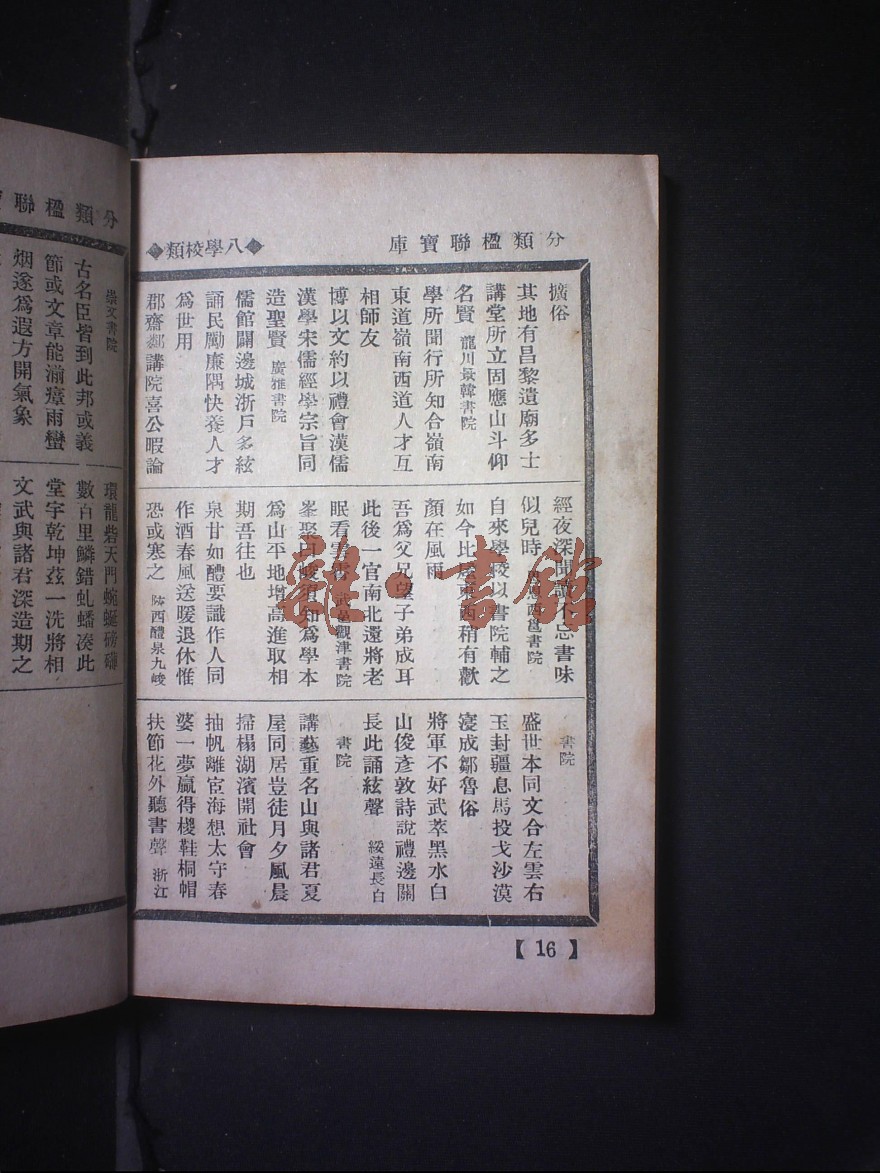 分類楹聯寶庫
八學校類
擴俗
其地有昌黎遺廟多士
講堂所立固應山斗仰
名賢 龍川景韓書院
學所聞行所知合嶺南
東道嶺南西道人才互
相師友
博以文約以禮會漢儒
漢學宋儒經學宗旨同
造聖賢 廣雅書院
儒館闢邊城浙戶多絃
誦民勵廉隅快養人才
爲世用
郡齋鄰講院喜公暇論
經夜深聞讀不忘書味
似兒時 書院
自來學校以書院輔之
如今比屋東西稍有歡
顏在風雨
吾爲父兄望子弟成耳
此後一官南北還將老
眠看雲書 觀津書院
峯聚日峻須知爲學本
爲山平地增高進取相
期吾往也
泉甘如醴要識作人同
作酒春風送暖退休惟
恐或寒之 陝西醴泉九峻
書院
盛世本同文合左雲右
玉封疆息馬投戈沙漠
寖成鄒魯俗
將軍不好武萃黑水白
山俊彥敦詩說禮邊關
長此誦絃聲 綏遠長白
書院
講藝重名山與諸君夏
屋同居豈徒月夕風晨
掃榻湖濱開社會
抽帆離宦海想太守春
婆一夢贏得椶鞋桐帽
扶節花外聽書聲 浙江
【16】
分類楹聯
崇文書院
古名臣皆到此邦或義
節或文章能湔瘴雨蠻
烟遂爲遐方開氣象
環龍砦天門蜿蜒磅礴
數百里鱗錯虬蟠湊此
堂宇乾坤茲一洗將相
文武與諸君深造期之
雜·書館